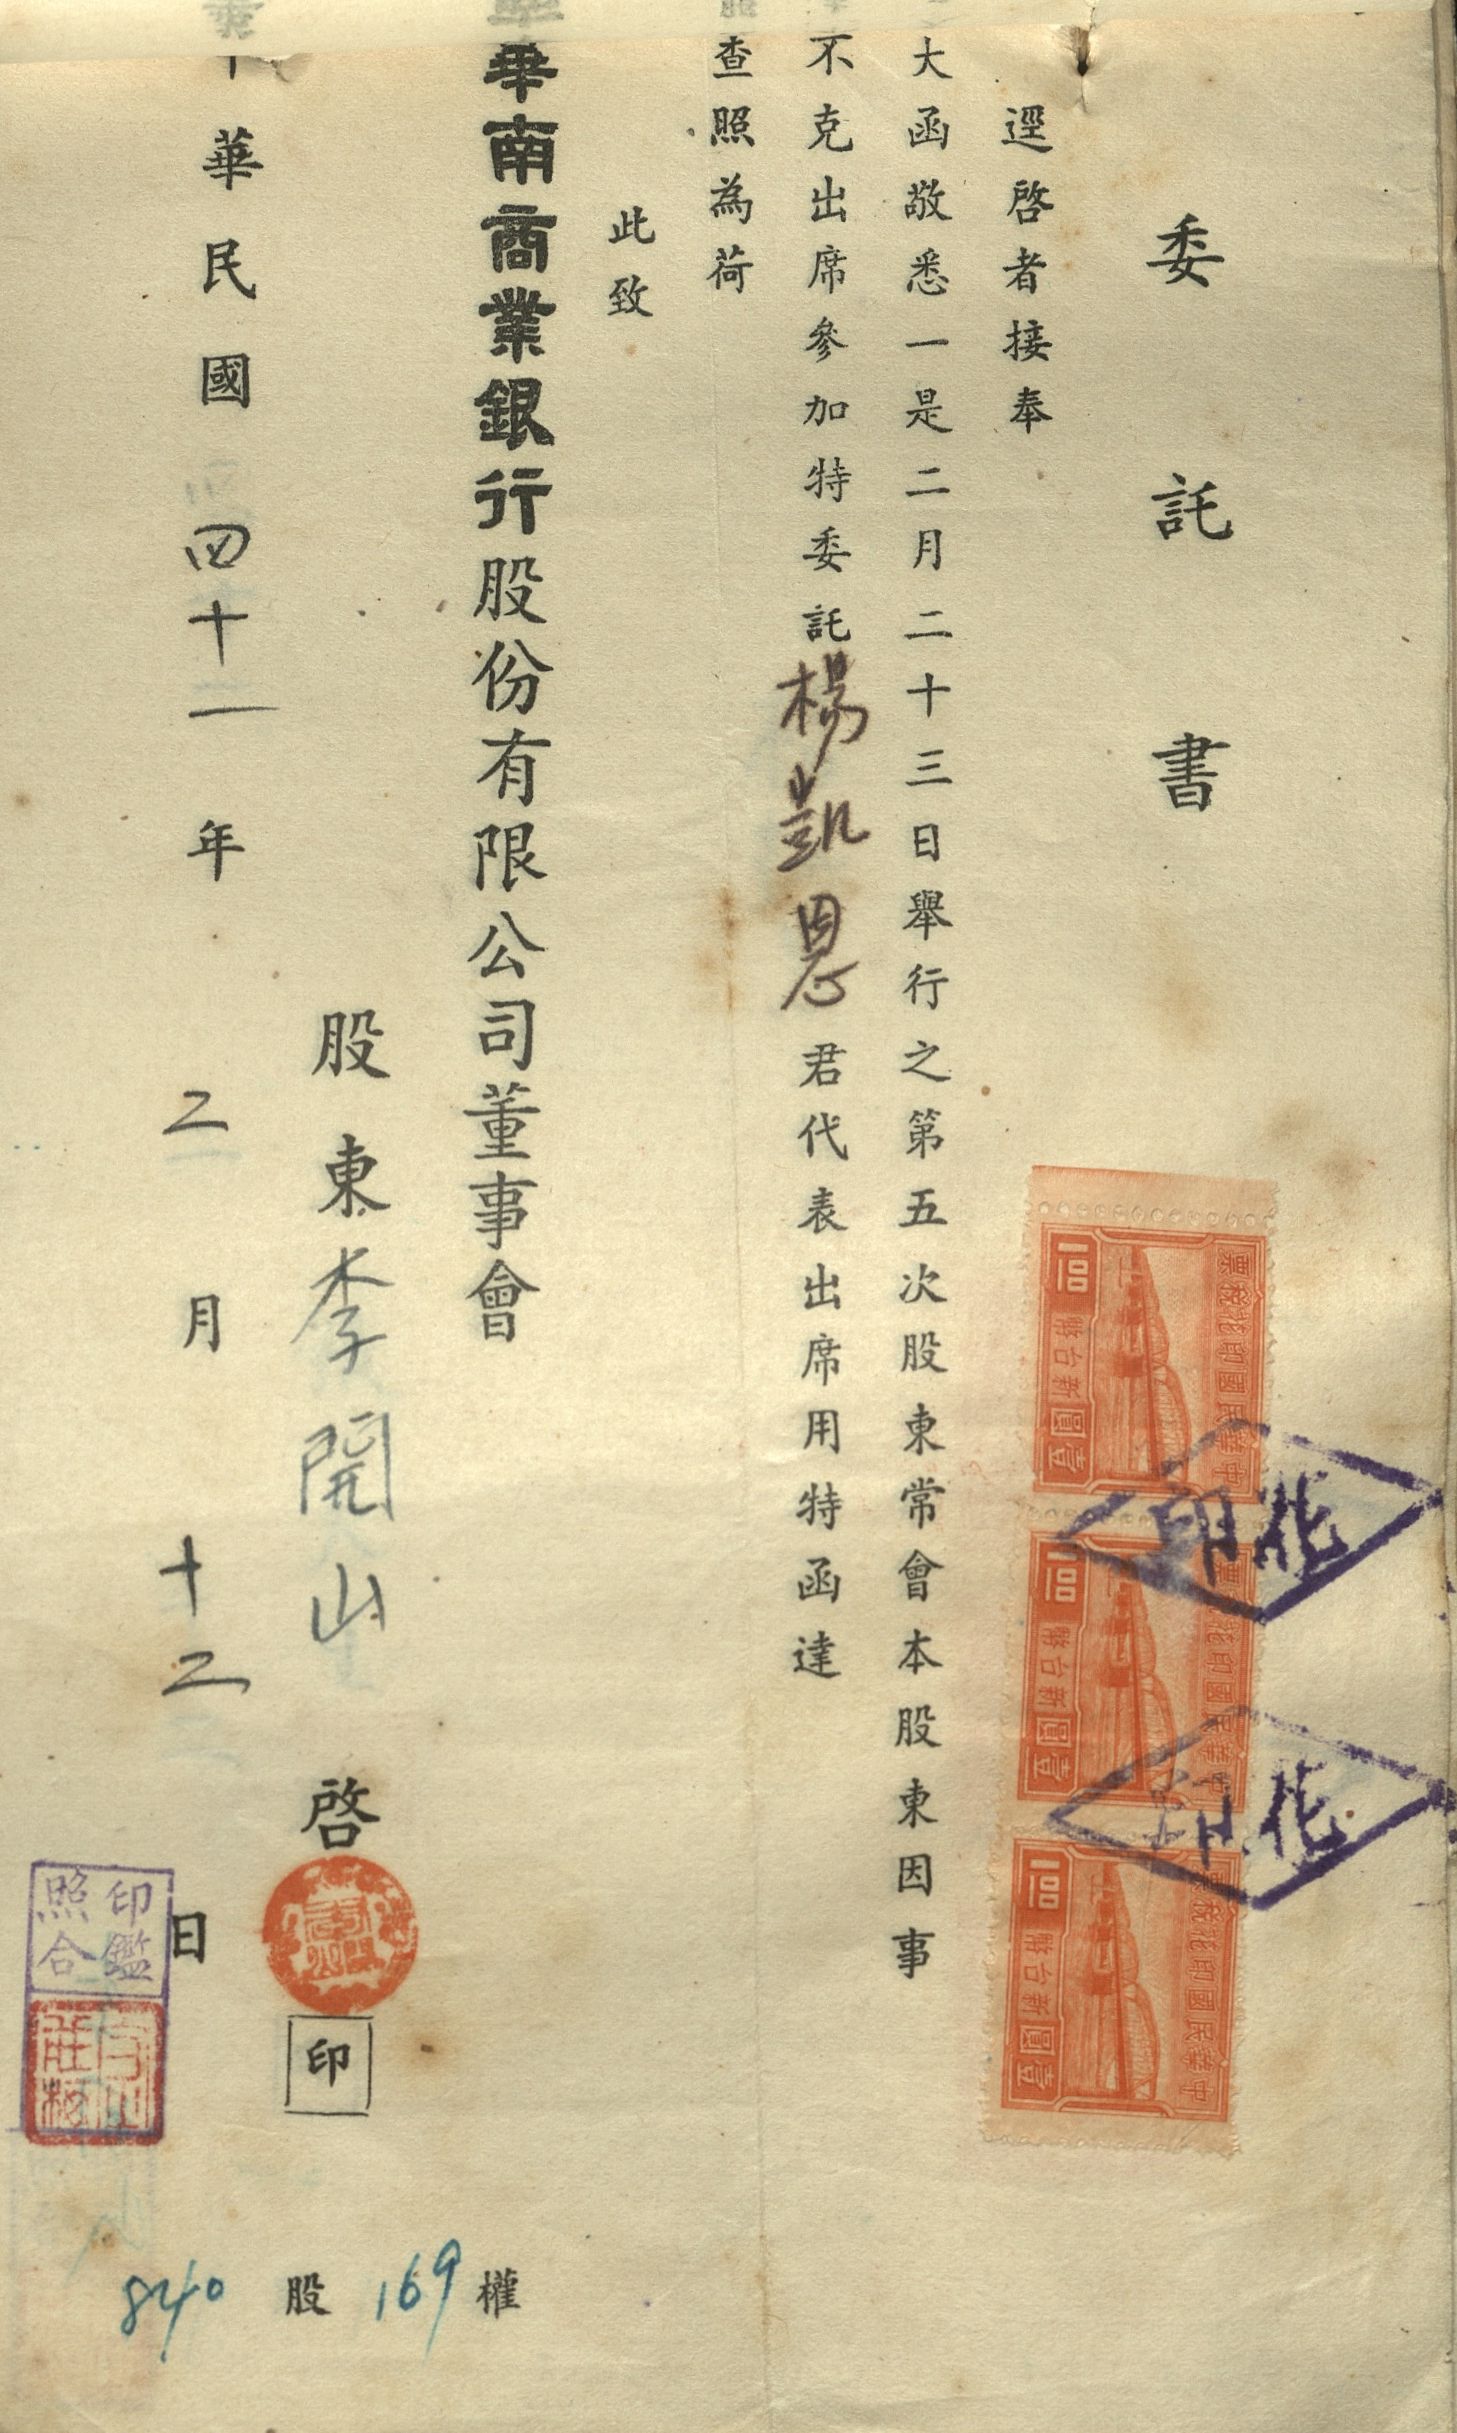 委託書
逕啓者接奉
大函敬悉一是二月二十三日舉行之第五次股東常會本股東因事
不克出席參加特委託楊凱恩君代表出席用特函達
查照為荷
此致
華南商業銀行股份有限公司董事會
股東李開山啓
印
華民國四十二年二月十二日
印鑑
照合
840股169權
中華民國印花稅票
壹圓
新台幣
100
印花
中華民國印花稅票
壹圓
新台幣
100
印花
中華民國印花稅票
壹圓
新台幣
100